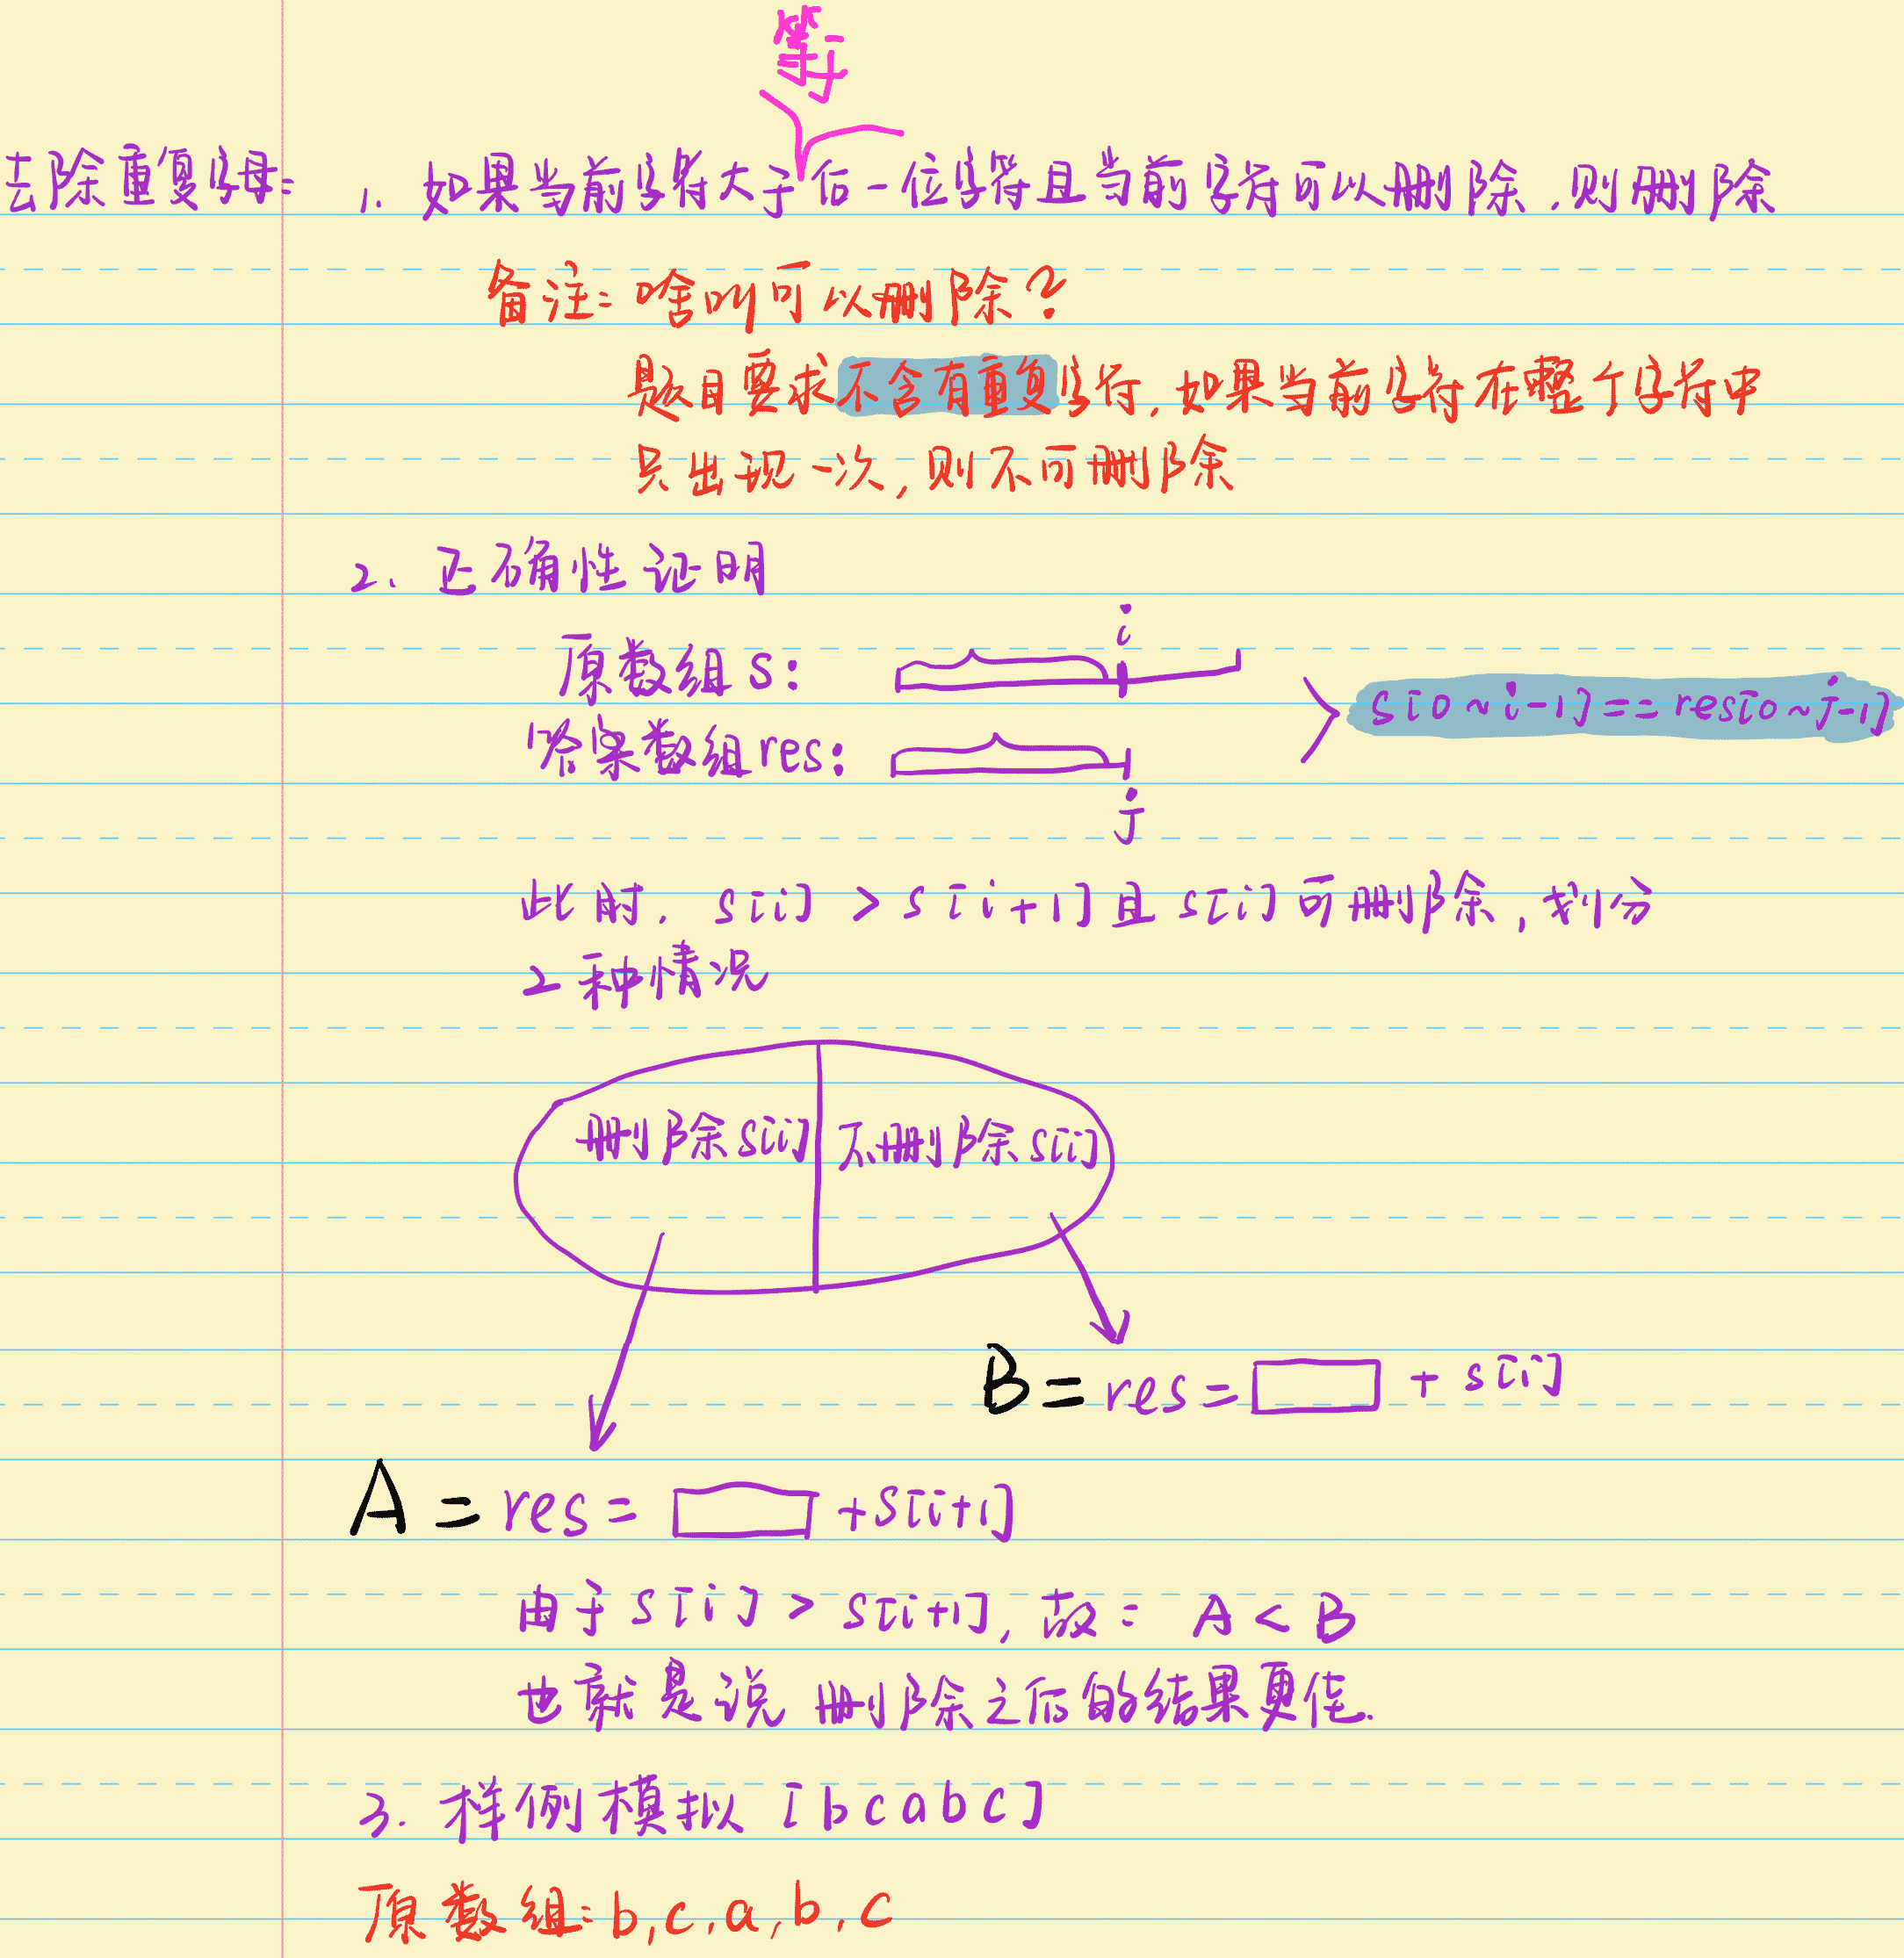 等于
去除重复字母: 1. 如果当前字符大于后一位字符且当前字符可以删除,则删除
备注: 啥叫可以删除?
题目要求不含有重复字符,如果当前字符在整个字符中
只出现一次,则不可删除
2. 正确性证明
i
原数组 s:
s[0~i-1]==res[0~j-1]
答案数组res:
j
此时, s[i] > s[i+1]且 s[i]可删除,划分
2种情况
删除s[i] 不删除s[i]
B = res = + s[i]
A = res = + s[i+1]
由于 s[i] > s[i+1], 故: A < B
也就是说 删除之后的结果更佳.
3. 样例模拟 [bcabc]
原数组: b,c,a,b,c